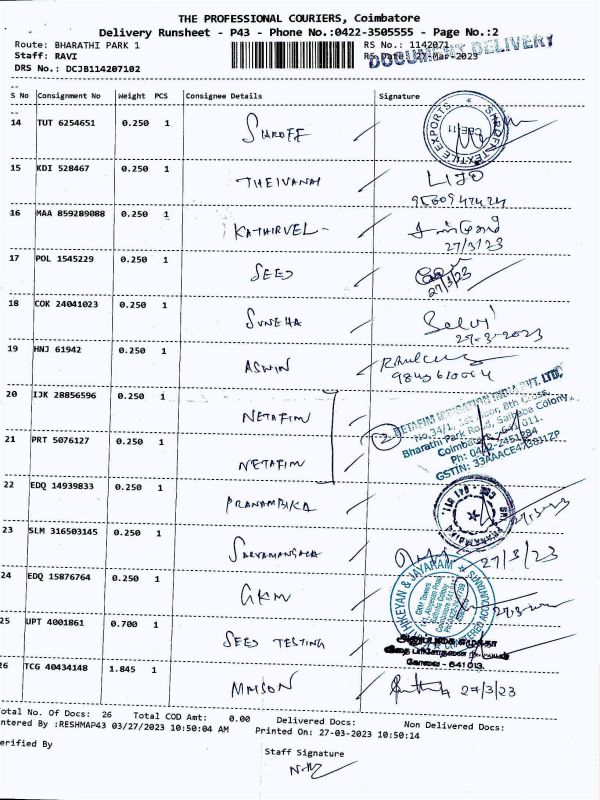 THE PROFESSIONAL COURIERS, Coimbatore
Delivery Runsheet - P43 - Phone No.:0422-3505555 - Page No.:2
Route: BHARATHI PARK 1 RS No.: 1142071
Staff: RAVI RS Date: 27-Mar-2023
DOCUMENT DELIVERY
DRS No.: DCJB114207102
S No Consignment No Weight PCS Consignee Details Signature
14 TUT 6254651 0.250 1 SHROFF
SHROFF TEXTILE EXPORTS
CBE/11
15 KDI 528467 0.250 1 THEIVANAI LIJO
16 MAA 859289088 0.250 1 KATHIRVEL-
27/3/23
17 POL 1545229 0.250 1 SEED
27/3/23
18 COK 24041023 0.250 1 SUNEHA Selvi
27-3-2023
19 HNJ 61942 0.250 1 ASWIN
20 IJK 28856596 0.250 1 NETAFIM
21 PRT 5076127 0.250 1 NETAFIM
2
NETAFIM IRRIGATION INDIA PVT. LTD.
No.34/1, 1st Floor, 8th Cross,
Bharathi Park Road, Saibaba Colony,
Coimbatore - 641 011.
22 EDQ 14939833 0.250 1 PRANAMBIKA
23 SLM 316503145 0.250 1 SARVAMANGALA 27/3/23
24 EDQ 15876764 0.250 1 GKM
25 UPT 4001861 0.700 1 SEED TESTING
கோவை - 641 013.
26 TCG 40434148 1.845 1 MMSON 27/3/23
Total No. Of Docs: 26 Total COD Amt: 0.00 Delivered Docs: Non Delivered Docs:
Entered By :RESHMAP43 03/27/2023 10:50:04 AM Printed On: 27-03-2023 10:50:14
Verified By
Staff Signature